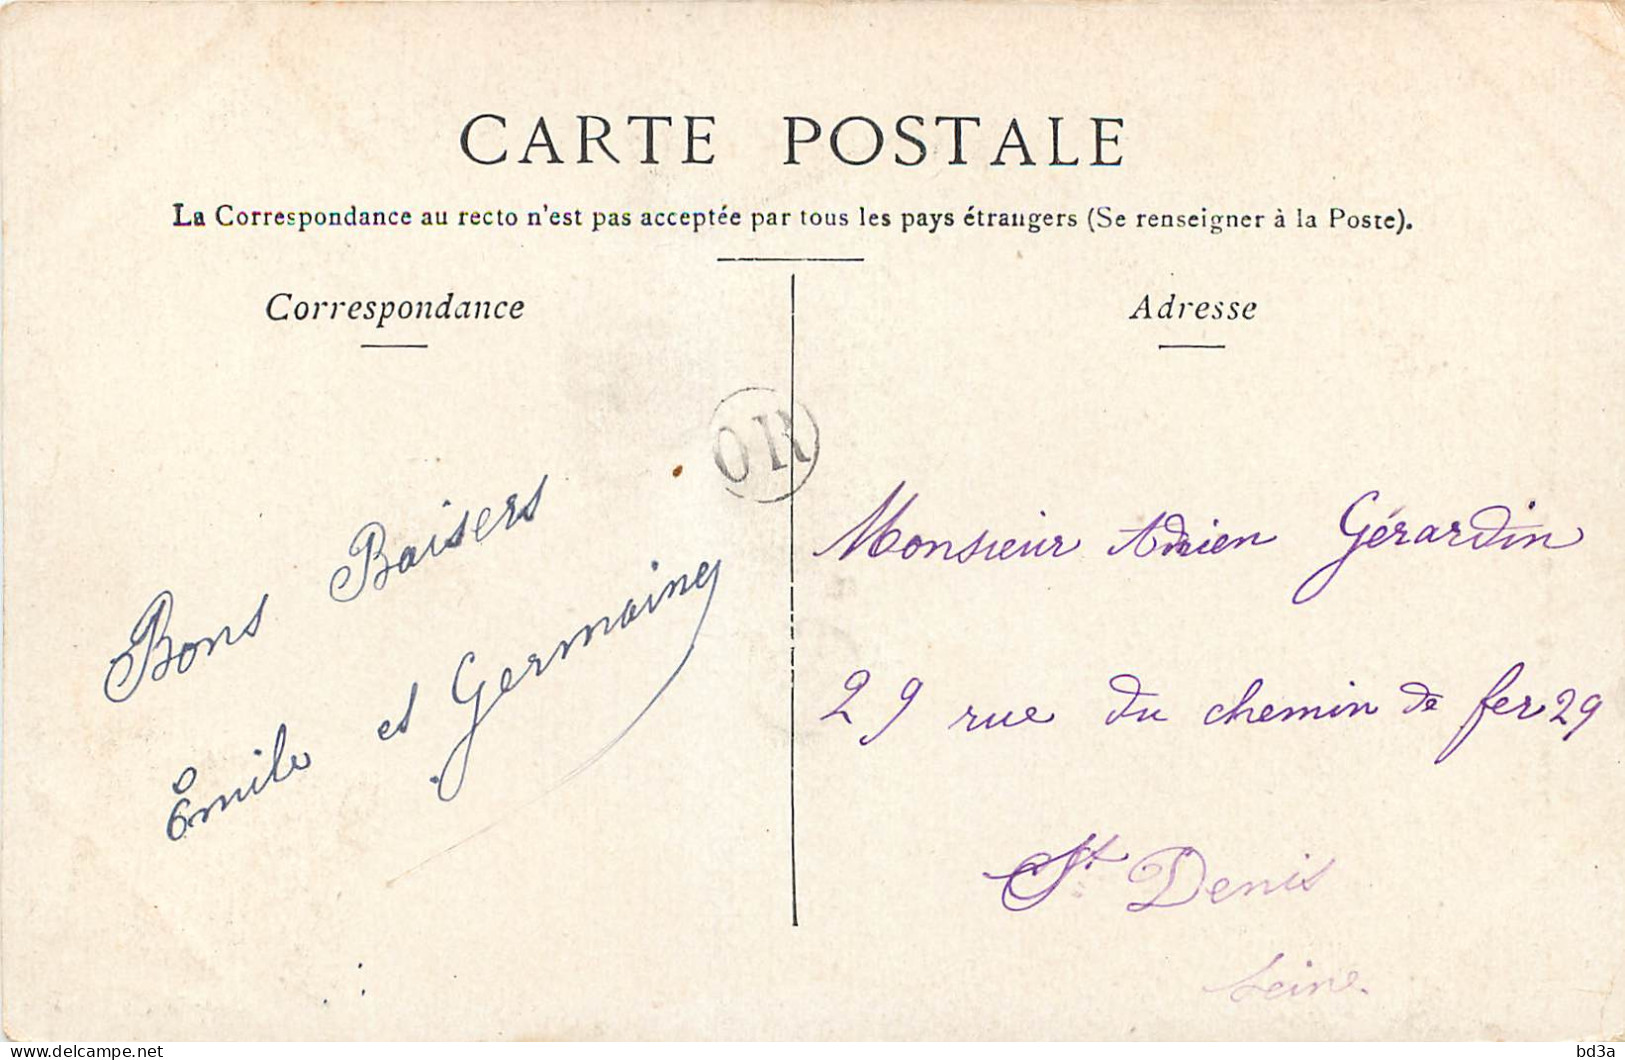 CARTE POSTALE
La Correspondance au recto n'est pas acceptée par tous les pays étrangers (Se renseigner à la Poste).
Correspondance
Adresse
OR
Bons Baisers
Emile et Germaine
Monsieur Adrien Gérardin
29 rue du chemin de fer 29
St Denis
Seine.
delcampe.net
bd3a